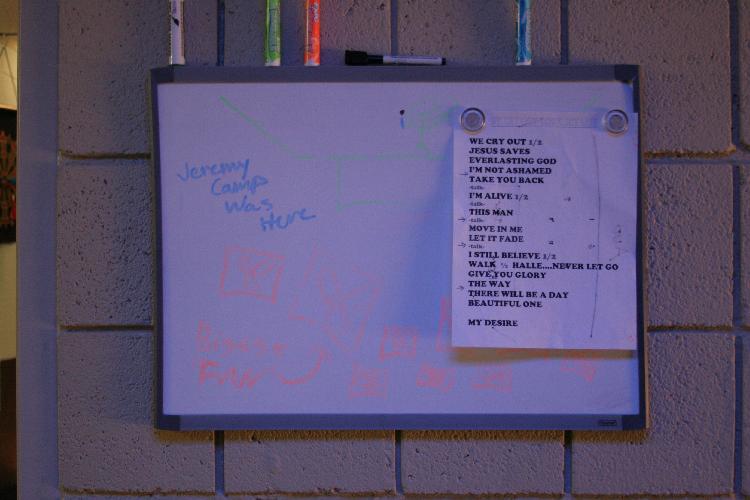 Jeremy
Camp
Was
Here
WE CRY OUT 1/2
JESUS SAVES
EVERLASTING GOD
I'M NOT ASHAMED
TAKE YOU BACK
-talk-
I'M ALIVE 1/2
-talk-
THIS MAN
-talk-
MOVE IN ME
LET IT FADE
-talk-
I STILL BELIEVE 1/2
WALK ½ HALLE....NEVER LET GO
GIVE YOU GLORY
THE WAY
THERE WILL BE A DAY
BEAUTIFUL ONE
MY DESIRE